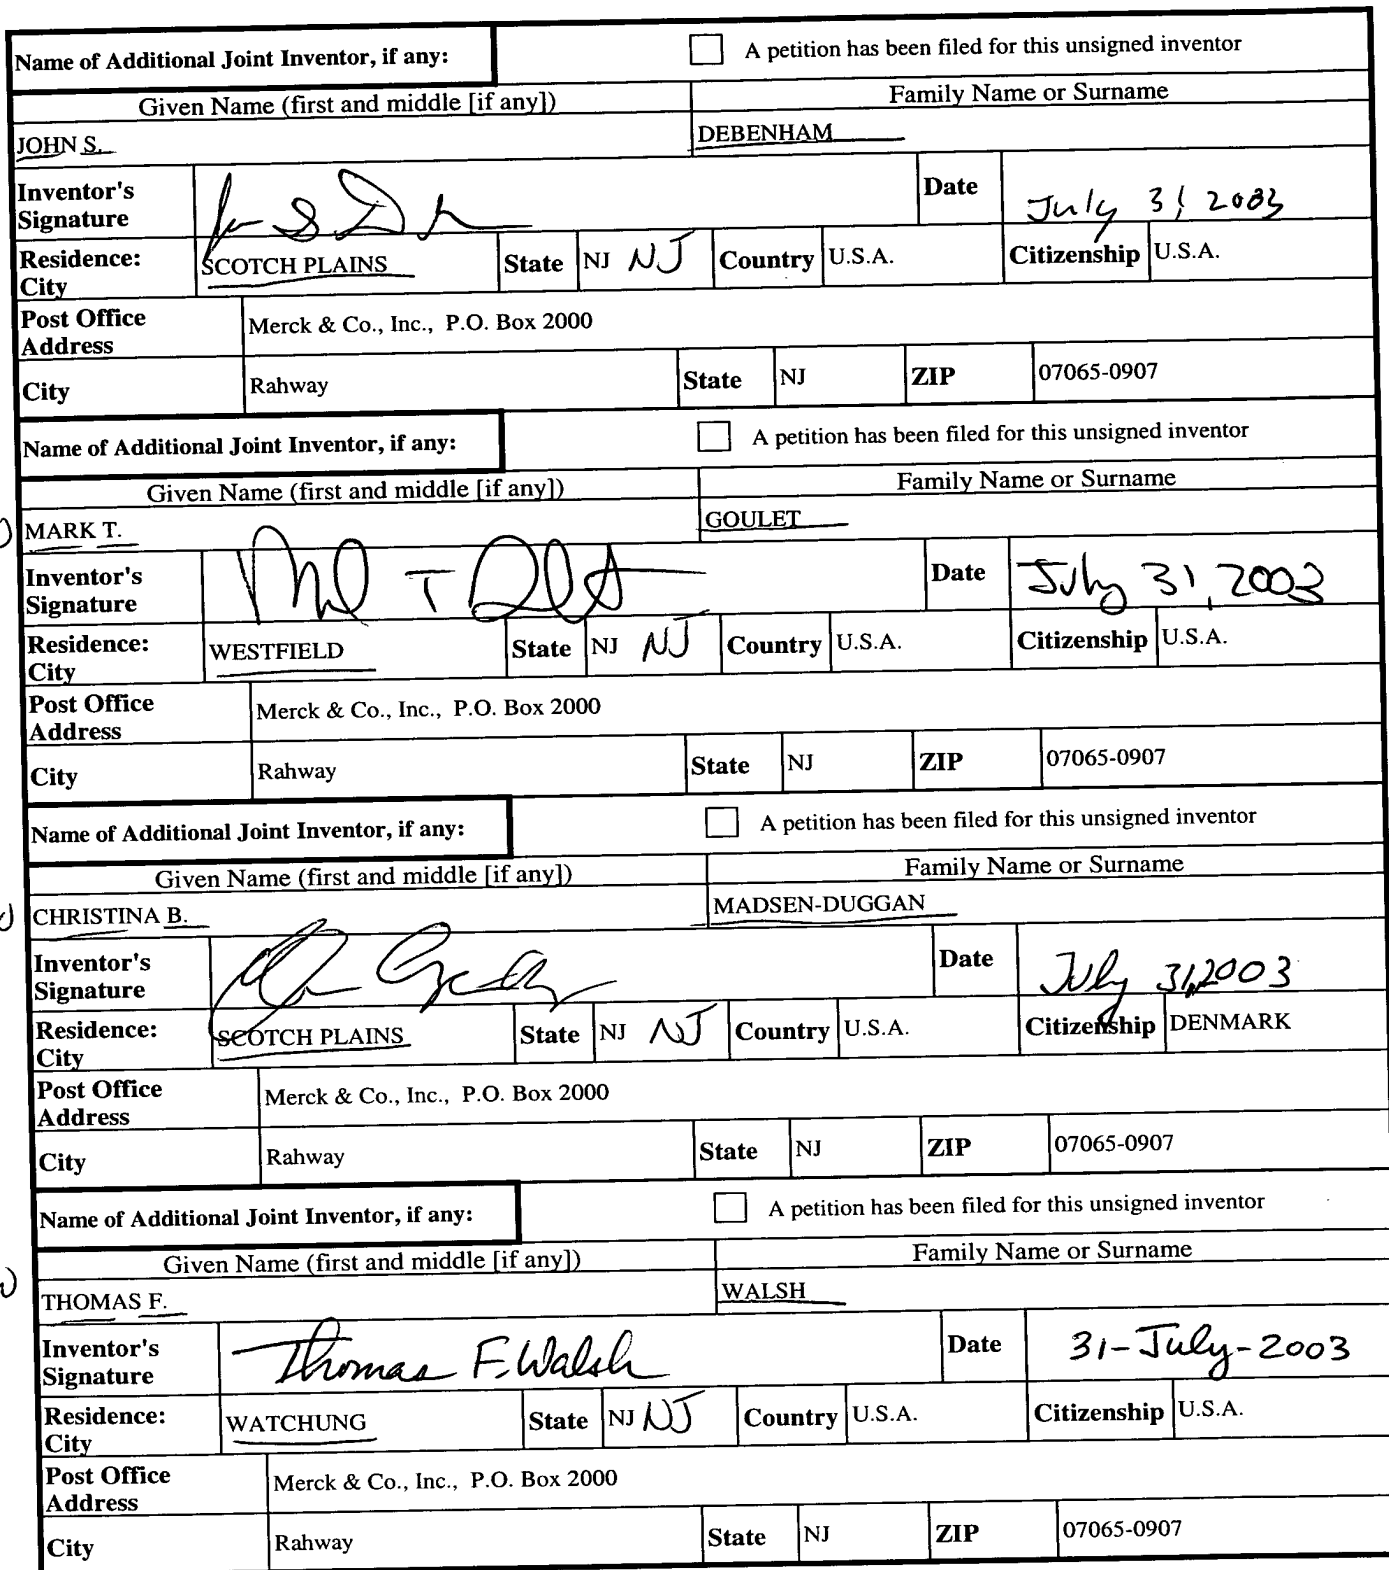 Name of Additional Joint Inventor, if any: A petition has been filed for this unsigned inventor
Given Name (first and middle [if any]) Family Name or Surname
JOHN S. DEBENHAM
Inventor's Signature Date July 31, 2003
Residence: City SCOTCH PLAINS State NJ NJ Country U.S.A. Citizenship U.S.A.
Post Office Address Merck & Co., Inc., P.O. Box 2000
City Rahway State NJ ZIP 07065-0907
Name of Additional Joint Inventor, if any: A petition has been filed for this unsigned inventor
Given Name (first and middle [if any]) Family Name or Surname
MARK T. GOULET
Inventor's Signature Date July 31, 2003
Residence: City WESTFIELD State NJ NJ Country U.S.A. Citizenship U.S.A.
Post Office Address Merck & Co., Inc., P.O. Box 2000
City Rahway State NJ ZIP 07065-0907
Name of Additional Joint Inventor, if any: A petition has been filed for this unsigned inventor
Given Name (first and middle [if any]) Family Name or Surname
CHRISTINA B. MADSEN-DUGGAN
Inventor's Signature Date July 31, 2003
Residence: City SCOTCH PLAINS State NJ NJ Country U.S.A. Citizenship DENMARK
Post Office Address Merck & Co., Inc., P.O. Box 2000
City Rahway State NJ ZIP 07065-0907
Name of Additional Joint Inventor, if any: A petition has been filed for this unsigned inventor
Given Name (first and middle [if any]) Family Name or Surname
THOMAS F. WALSH
Inventor's Signature Thomas F. Walsh Date 31-July-2003
Residence: City WATCHUNG State NJ NJ Country U.S.A. Citizenship U.S.A.
Post Office Address Merck & Co., Inc., P.O. Box 2000
City Rahway State NJ ZIP 07065-0907